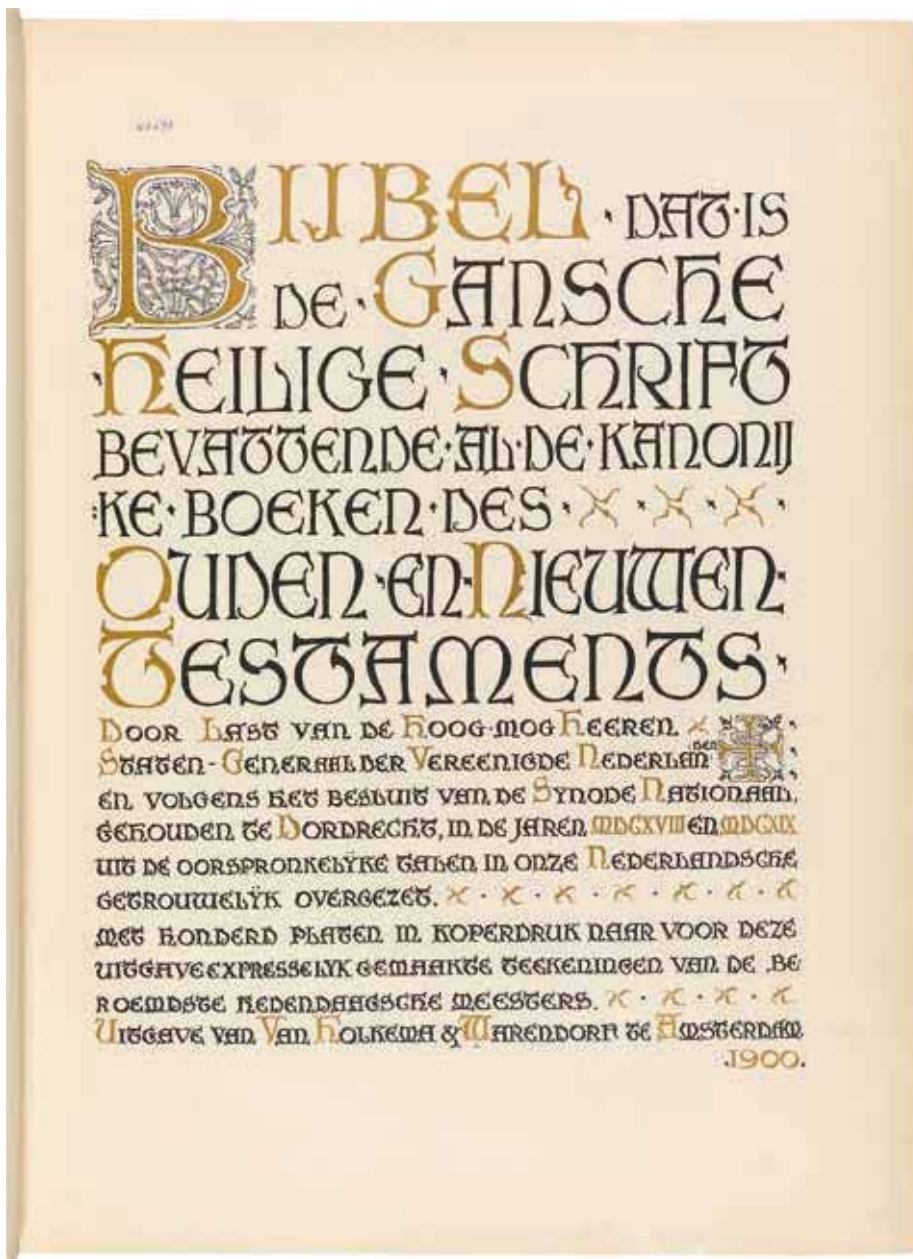 BIJBEL · DAT · IS
DE · GANSCHE
· HEILIGE · SCHRIFT
BEVATTENDE · AL · DE · KANONIJ
KE · BOEKEN · DES ·
OUDEN · EN · NIEUWEN ·
TESTAMENTS ·
DOOR LAST VAN DE HOOG-MOG HEEREN.
STATEN-GENERAAL DER VEREENIGDE NEDERLANDEN
EN VOLGENS HET BESLUIT VAN DE SYNODE NATIONAAL,
GEHOUDEN TE DORDRECHT, IN DE JAREN MDCXVIII EN MDCXIX
UIT DE OORSPRONKELŸKE TALEN IN ONZE NEDERLANDSCHE
GETROUWELŸK OVERGEZET.
MET HONDERD PLATEN IN KOPERDRUK NAAR VOOR DEZE
UITGAVE EXPRESSELYK GEMAAKTE TEEKENINGEN VAN DE BE
ROEMDSTE HEDENDAAGSCHE MEESTERS.
UITGAVE VAN VAN HOLKEMA & WARENDORF TE AMSTERDAM
.1900.